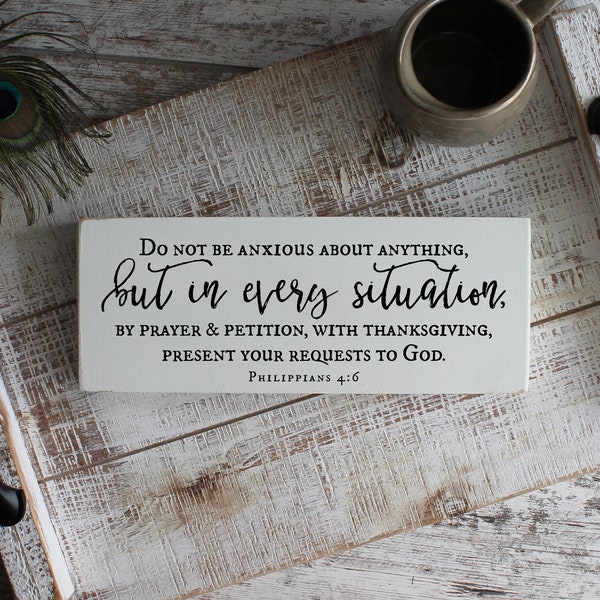 Do not be anxious about anything,
but in every situation,
by prayer & petition, with thanksgiving,
present your requests to God.
Philippians 4:6